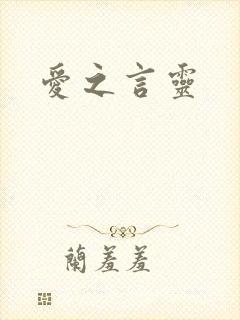 愛之言靈
蘭羞羞